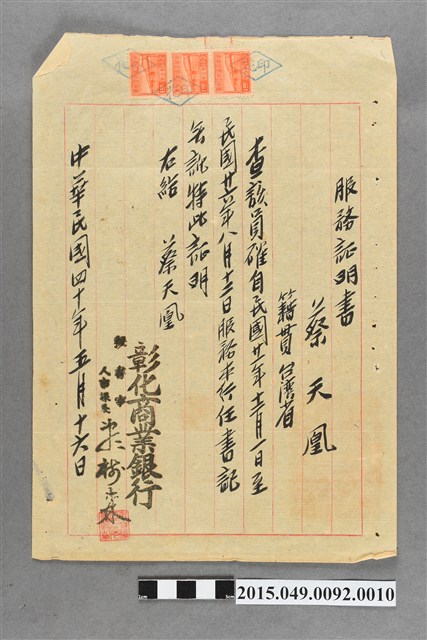 服務証明書
蔡天凰
籍貫台湾省
查該員確自民國廿一年十二月一日至
民國廿六年八月十三日服務本行任書記
無訛特此証明
右給 蔡天凰
彰化商業銀行
中華民國四十年五月十六日
2015.049.0092.0010